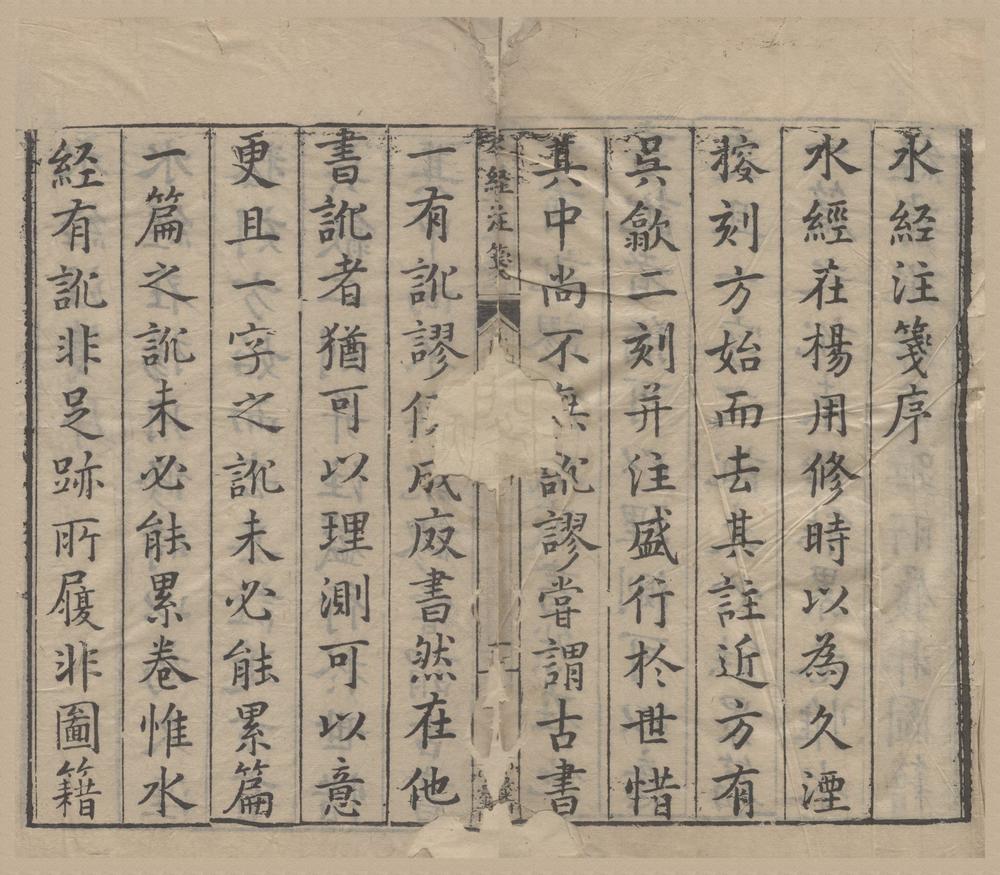 水経注箋序
水經茌楊用修時以為久湮
按刻方始而去其註近方有
吳歙二刻并注盛行於世惜
其中尚不無訛謬嘗謂古書
経注箋
一有訛謬成癈書然在他
書訛者猶可以理測可以意
更且一字之訛未必能累篇
一篇之訛未必能累卷惟水
経有訛非足跡所履非圖籍